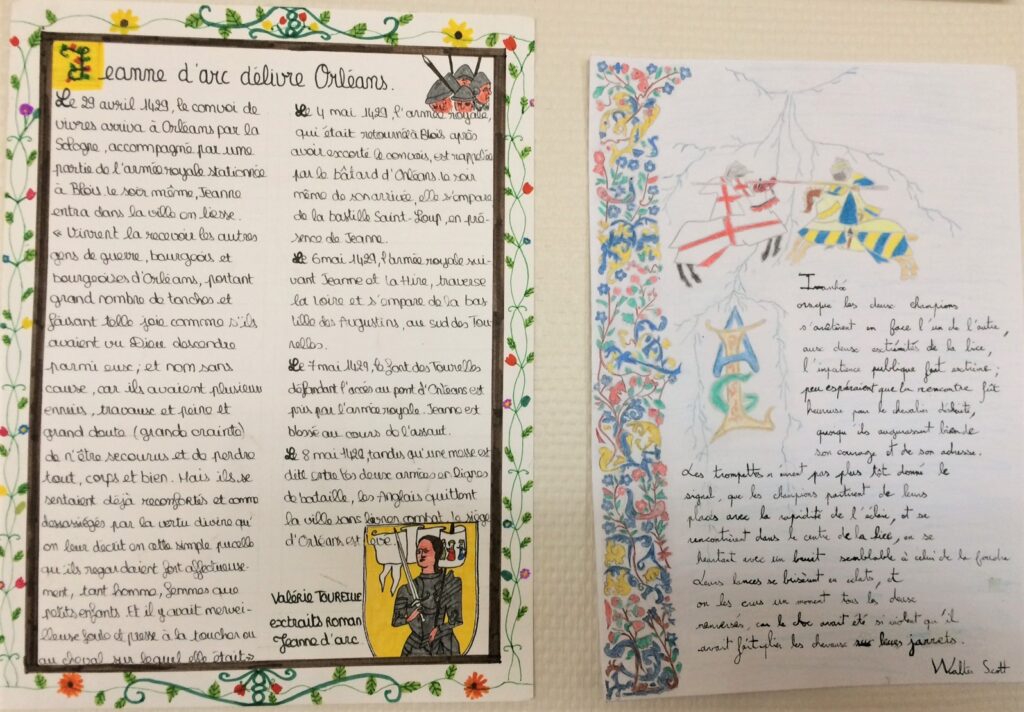 Jeanne d'arc délivre Orléans.
Le 29 avril 1429, le convoi de
vivres arriva à Orléans par la
Sologne, accompagné par une
partie de l'armée royale stationnée
à Blois le soir même, Jeanne
entra dans la ville en liesse.
« Vinrent la recevoir les autres
gens de guerre, bourgeois et
bourgeoises d'Orléans, portant
grand nombre de torches et
faisant telle joie comme s'ils
avaient vu Dieu descendre
parmi eux; et non sans
cause, car ils avaient plusieurs
ennuis, travaux et peine et
grand doute (grande crainte)
de n'être secourus et de perdre
tout, corps et bien. Mais ils se
sentaient déjà reconfortés et comme
dessasiégés par la vertu divine qu'
on leur decut en cette simple pucelle
qu'ils regardaient fort affectueuse-
ment, tant homme, femmes que
petits enfants. Et il y avait mervei-
lleuse foule et presse à la toucher ou
au cheval sur lequel elle était»
Le 4 mai 1429, l'armée royale,
qui était retournée à Blois après
avoir escorté le convois, est rappelée
par le bâtard d'Orléans le soir
même de son arrivée, elle s'empare
de la bastille Saint-Loup, en pré-
sence de Jeanne.
Le 6 mai 1429, l'armée royale sui-
vant Jeanne et La Hire, traverse
la Loire et s'empare de la bas
tille des Augustins, au sud des Tou-
relles.
Le 7 mai 1429, le font des Tourelles
défendant l'accès au pont d'Orléans est
pris par l'armée royale. Jeanne est
blessé au cours de l'assaut.
Le 8 mai 1429, tandis qu'une messe est
dite entre les deux armées en lignes
de bataille, les Anglais quittent
la ville sans livrer combat, le siège
d'Orléans est levé.
Valérie TOUREILLE
extraits Roman
Jeanne d'arc
Ivanhoé
orsque les deux champions
s'arrêtèrent en face l'un de l'autre,
aux deux extrémités de la lice,
l'impatience publique fut extrême;
peu espéraient que la rencontre fût
heureuse pour le chevalier déshérité,
quoiqu'ils augurassent bien de
son courage et de son adresse.
Les trompettes n'eurent pas plus tôt donné le
signal, que les champions partirent de leurs
places avec la rapidité de l'éclair, et se
rencontrèrent dans le centre de la lice, en se
heurtant avec un bruit semblable à celui de la foudre
Leurs lances se brisèrent en éclats, et
on les crus un moment tous les deux
renversés, car le choc avait été si violent qu'il
avait fait plier les chevaux sur leurs jarrets.
Walter Scott